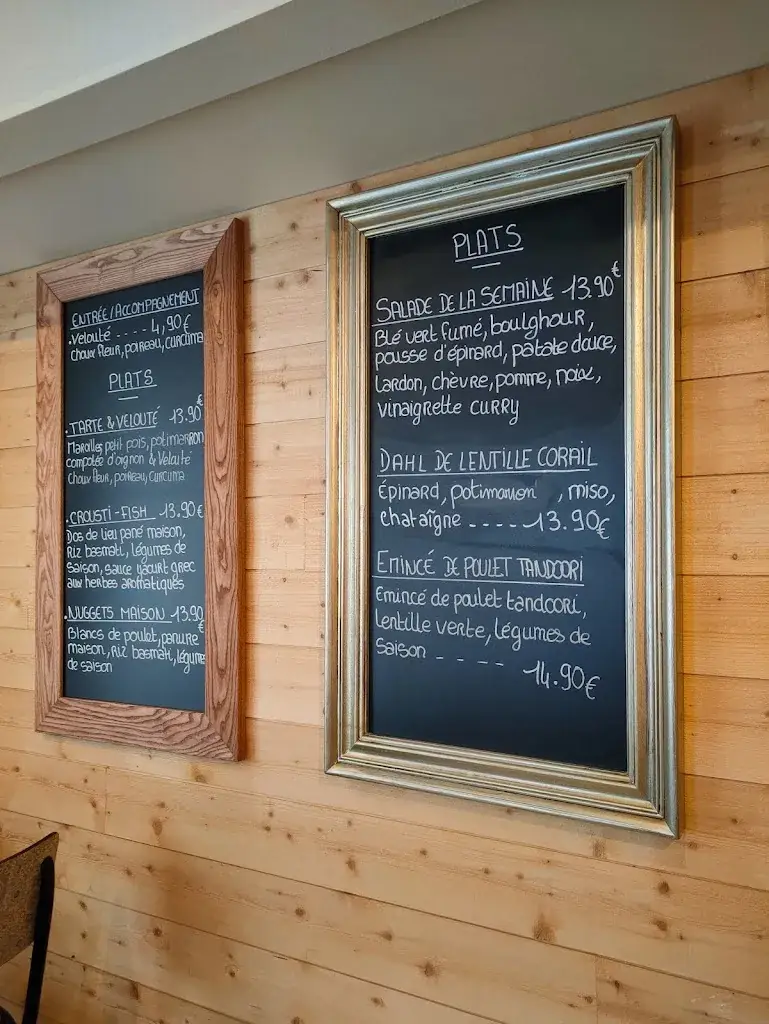 ENTRÉE/ACCOMPAGNEMENT
.Velouté ---- 4,90€
chou fleur, poireau, curcuma
PLATS
.TARTE & VELOUTÉ 13.90€
Maroilles petit pois, potimarron
compotée d'oignon & Velouté
Chou fleur, poireau, curcuma
.CROUSTI-FISH 13.90€
Dos de lieu pané maison,
Riz basmati, légumes de
saison, sauce yaourt grec
aux herbes aromatiques
.NUGGETS MAISON 13.90€
Blancs de poulet, panure
maison, Riz basmati, légumes
de saison
PLATS
SALADE DE LA SEMAINE 13.90€
Blé vert fumé, boulghour,
pousse d'épinard, patate douce,
lardon, chèvre, pomme, noix,
vinaigrette curry
DAHL DE LENTILLE CORAIL
Épinard, potimarron , miso,
chataîgne -----13.90€
EMINCÉ DE POULET TANDOORI
Emincé de poulet tandoori,
lentille verte, légumes de
saison - - - -
14.90€